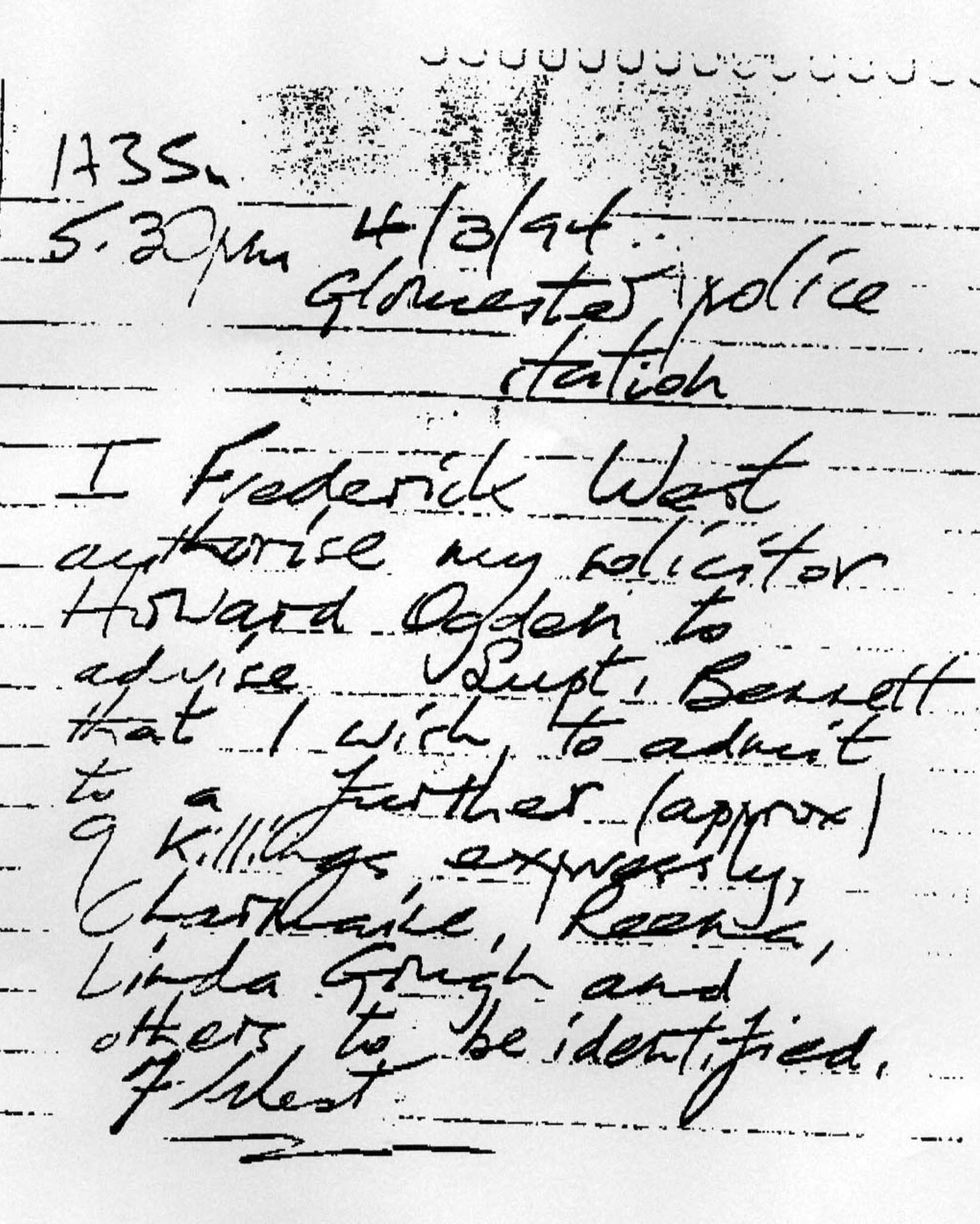 5.30pm 4/3/94
Gloucester police
station
I Frederick West
authorise my solicitor
Howard Ogden to
advise Supt. Bennett
that I wish to admit
to a further (approx)
9 killings expressly,
Charmaine, Reena,
Linda Gough and
others to be identified.
F West